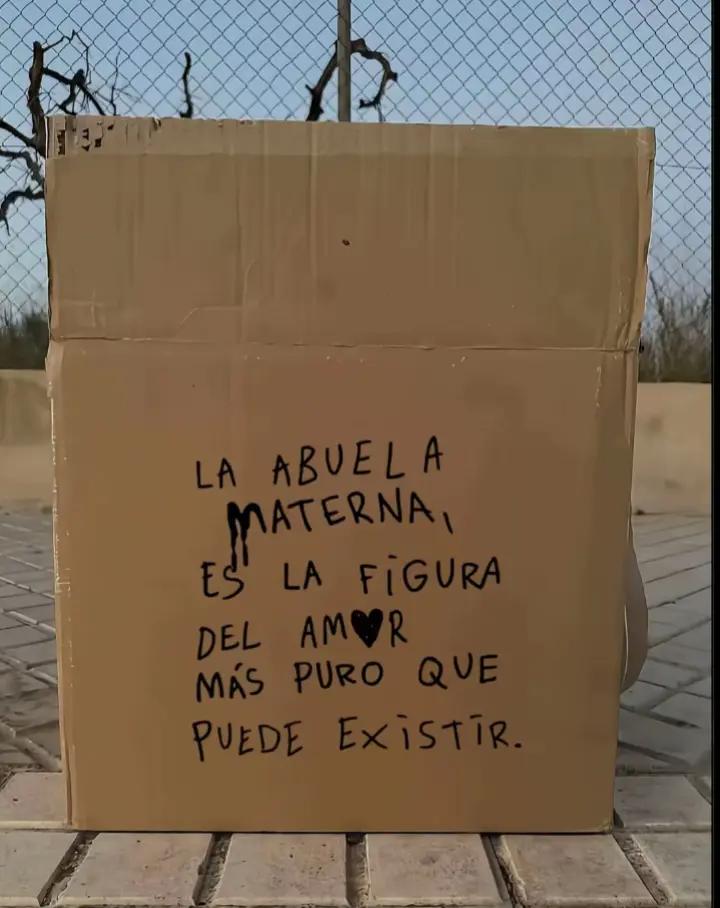 LA ABUELA
MATERNA,
ES LA FIGURA
DEL AM♥R
MÁS PURO QUE
PUEDE EXISTIR.